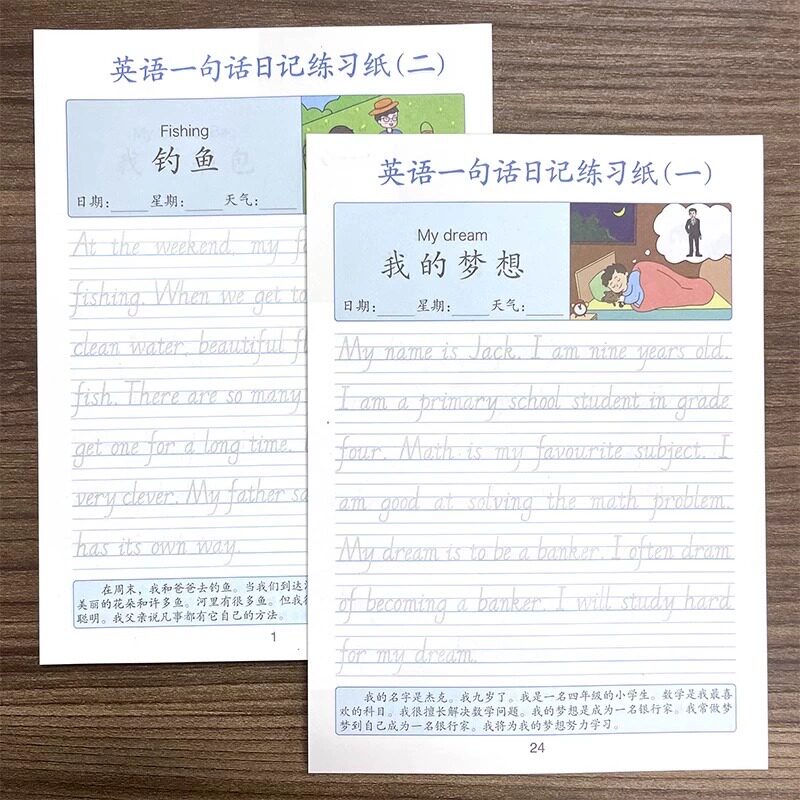 英语一句话日记练习纸(二)
Fishing
钓鱼
日期: 星期: 天气:
At the weekend, my fa
fishing. When we get to
clean water, beautiful fl
fish. There are so many
get one for a long time.
very clever. My father sa
has its own way.
在周末，我和爸爸去钓鱼。当我们到达
美丽的花朵和许多鱼。河里有很多鱼。但我
聪明。我父亲说凡事都有它自己的方法。
1
英语一句话日记练习纸(一)
My dream
我的梦想
日期: 星期: 天气:
My name is Jack. I am nine years old.
I am a primary school student in grade
four. Math is my favourite subject. I
am good at solving the math problem.
My dream is to be a banker. I often dram
of becoming a banker. I will study hard
for my dream.
我的名字是杰克。我九岁了。我是一名四年级的小学生。数学是我最喜
欢的科目。我很擅长解决数学问题。我的梦想是成为一名银行家。我常做梦
梦到自己成为一名银行家。我将为我的梦想努力学习。
24